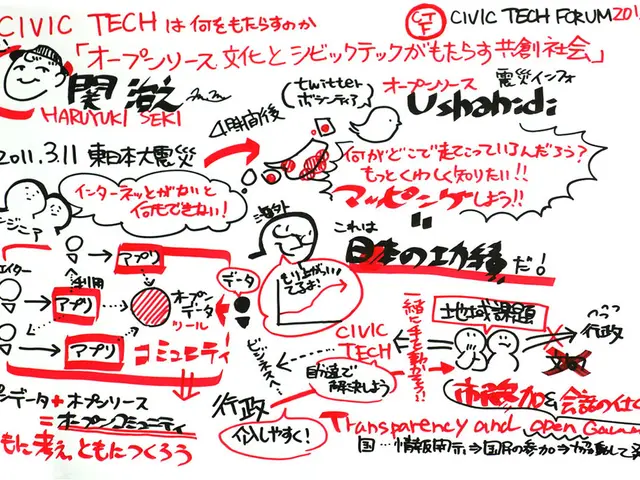 CIVIC TECH は 何をもたらすのか
CIVIC TECH FORUM 201
CTF
「オープンソース文化とシビックテックがもたらす共創社会」
関 治之
HARUYUKI SEKI
twitter
ボランティア
オープンソース
震災インフォ
Ushahidi
4時間後
2011.3.11 東日本大震災
何が どこで 走てこっているんだろう?
もっとくわしく知りたい!!
マッピングしよう!!
インターネッとがないと
何もできない!
ジニア
海外
これは
日本の功績だ!
もり上がっい
てるお!
アプリ
利用
データ
エイター
アプリ
オープン
データ
ツール
アプリ
コミュニティ
ビジネスへ…
CIVIC
TECH
自分達で
解決しよう
一緒に手を動かそう!!
地域課題
行政
行政
介入しやすく!
市民参加&会話の仕
ンデータ+オープンソース
=オープンコミュニティ
もに考え、ともにつくろう
Transparency and open Gover
国…情報開示⇒国民の参加⇒